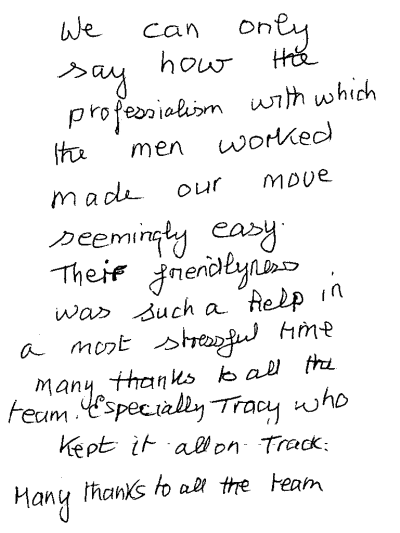 We can only
say how the
professialism with which
the men worked
made our move
seemingly easy.
Their friendlyness
was such a help in
a most stressful time
many thanks to all the
team. Especially Tracy, who
kept it all on Track.
Many thanks to all the team